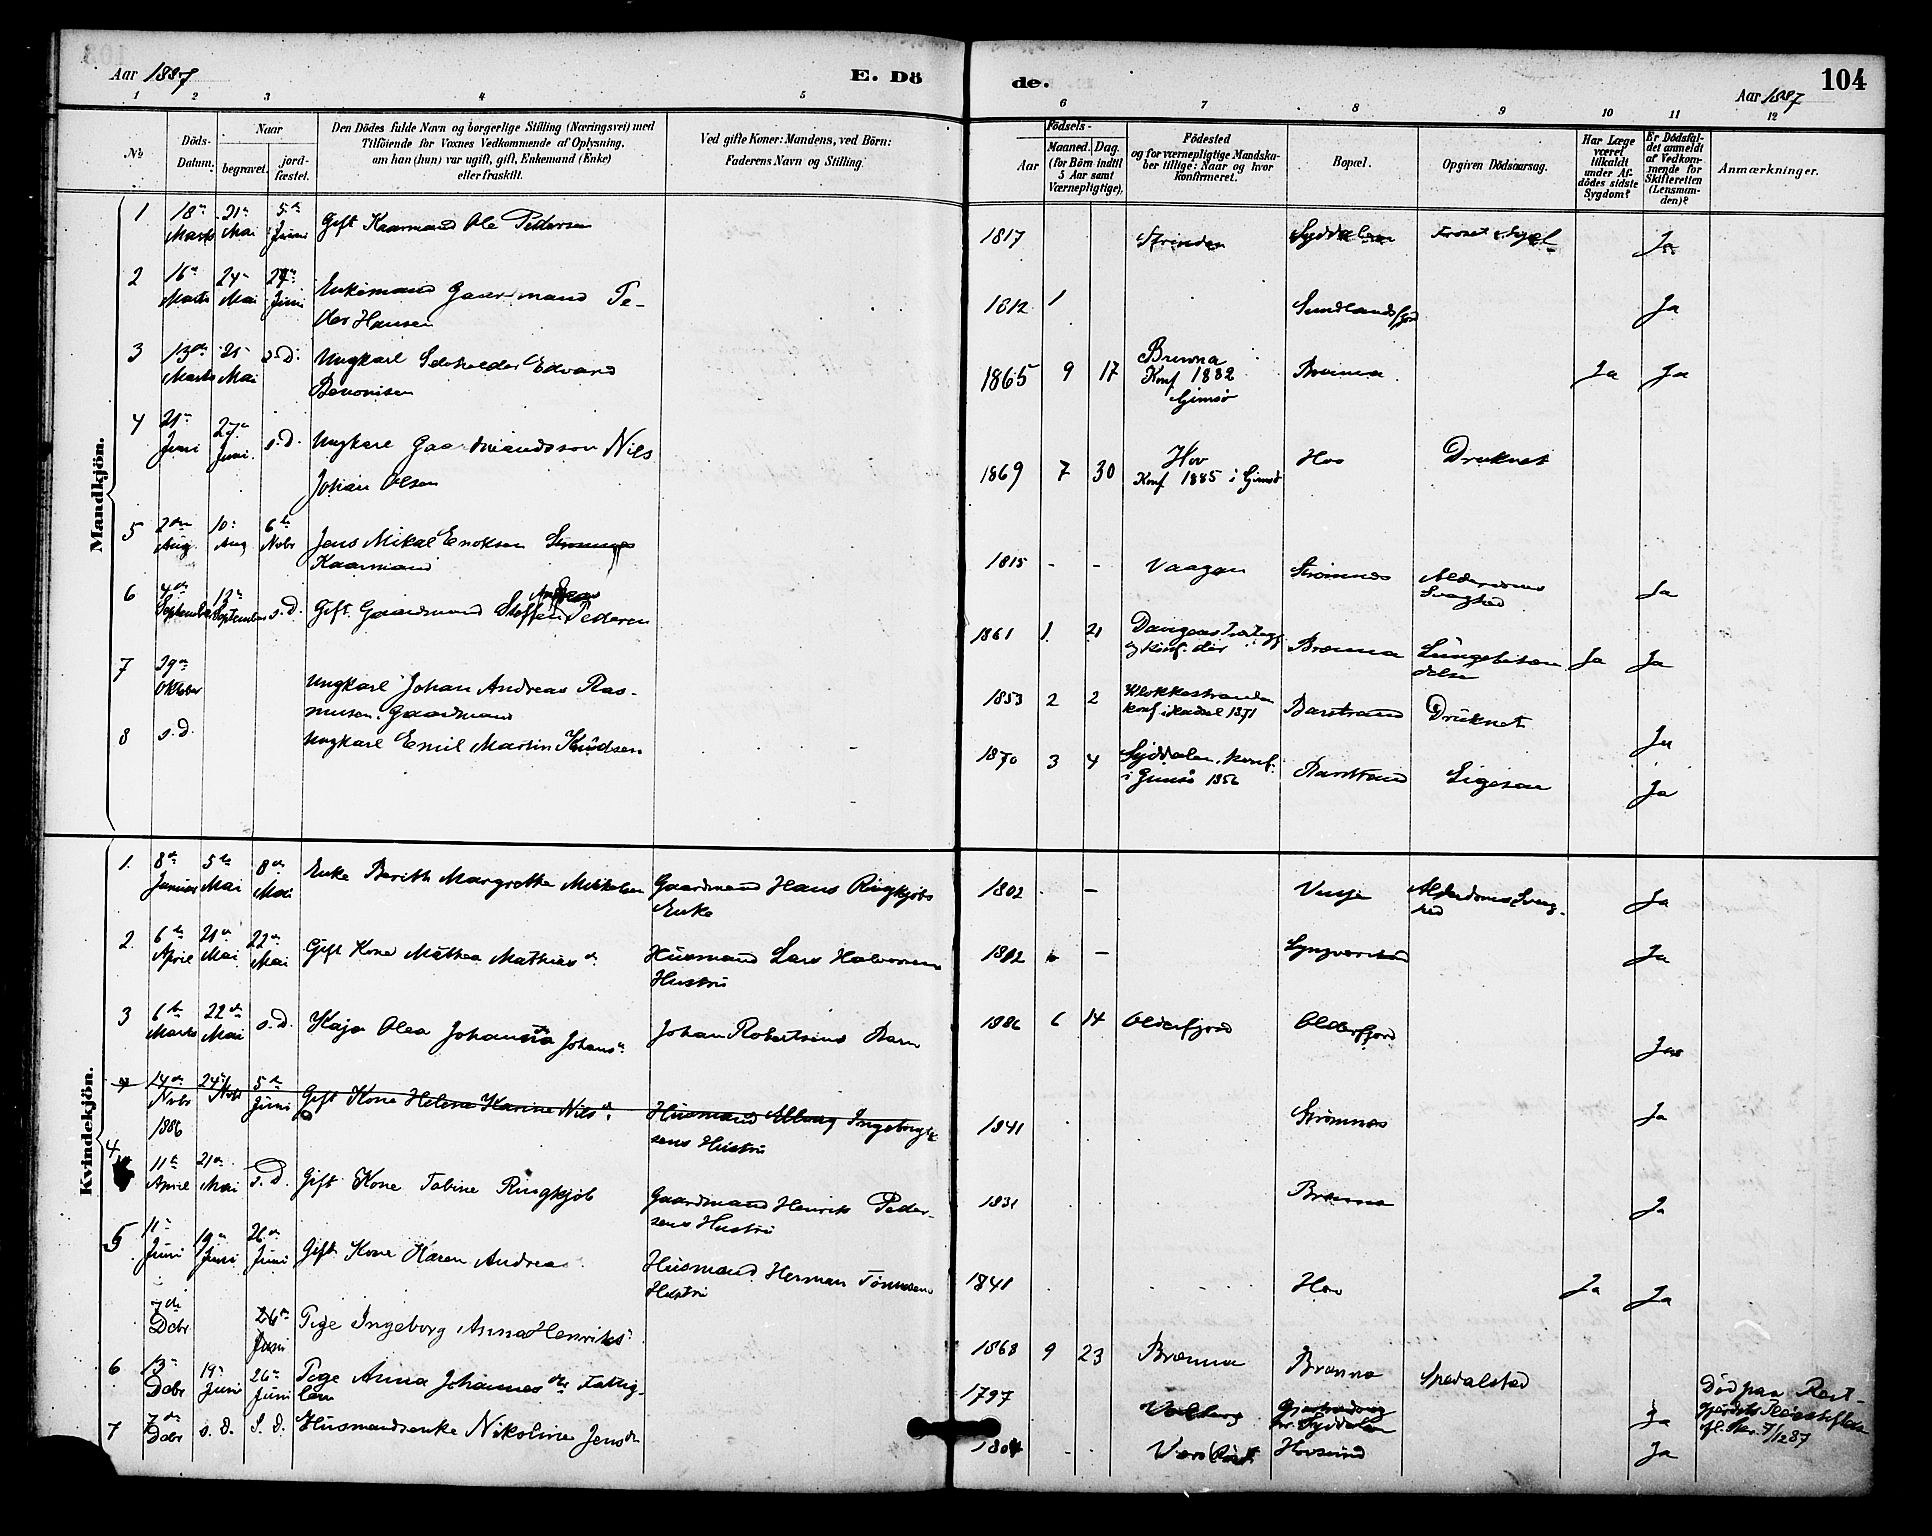 Aar 1887
E. Dö
de.
Aar 1887
104
1 2 3 4 5 6 7 8 9 10 11 12
No
Döds-Datum.
Naar
begravet.
jordfæstet.
Den Dödes fulde Navn og borgerlige Stilling (Næringsvei) med
Tilföiende for Voxnes Vedkommende af Oplysning,
om han (hun) var ugift, gift, Enkemand (Enke)
eller fraskilt.
Ved gifte Koner: Mandens, ved Börn:
Faderens Navn og Stilling.
Födsels-
Aar
Maaned.
Dag.
(for Börn indtil
5 Aar samt
Værnepligtige),
Födested
og for værnepligtige Mandska-
ber tillige: Naar og hvor
konfirmeret.
Bopæl.
Opgiven Dödsaarsag.
Har Læge
været
tilkaldt
under Af-
dödes sidste
Sygdom?
Er Dödsfal-
det anmeldt
af Vedkom-
mende for
Skifteretten
(Lensman-
den)?
Anmærkninger.
Mandkjön.
1 18de Marts 21de Mai 5te Juni Gift Kaarmand Ole Pedersen 1817 Strinden Syddalen Ja
2 16de Marts 24de Mai Juni Enkemand Gaardmand Pe-
der Hansen 1812 Sundlandsfjord Ja
3 13de Marts 21de Mai s.D. Ungkarl Edvard
Benonisen 1865 9 17 Brenna
Konf 1882
Gimsö Brenna Ja Ja
4 21de Juni 27de Juni s.D. Ungkarl Gaardmandssøn Nils
Johan Olsen 1869 7 30 Hov
Konf 1885 i Gimsö Hov Druknet
5 2den Aug. 10de Aug 6te Novbr Jens Mikal Enoksen Strømnes
Kaarmand 1815 - - Vaagan Strømnes Alderdoms
Svaghed Ja
6 4de September 12te September s.D. Gift Gaardmand Steffen Andreas Pedersen 1861 1 21 konf. der Brenna Lungebetæn
delse Ja Ja
7 29de Oktober Ungkarl Johan Andreas Ras-
musen. Gaardmand 1853 2 2 Klokkestranden
konf 1871 Barstrand Druknet Ja
8 s.D. Ungkarl Emil Martin Knudsen 1870 3 4 Syddalen, konf.
i Gimsö 1886 Barstrand Ligesaa Ja
Kvindekjön.
1. 8de Januar 5te Mai 8de Mai Enke Berith Margrethe Mikkelsen Gaardmand Hans Ringkjøbs
Enke 1802 - Vinje Alderdoms Svag-
hed Ja
2 6te April 21de Mai 22de Mai Gift Kone Mathea Mathiasd. Husmand Lars Halvorsens
Hustru 1812 - Lyngværstad Ja
3 6te Marts 22de Mai s.D. Kaja Olea Johanna Johansd. Johan Robertsens Barn 1886 6 14 Olderfjord Olderfjord Ja
4 14de Novbr 1886 24de Novbr 5te Juni Gift Kone Helena Karine Nilsd. Husmand Elling Ingebrigt-
sens Hustru 1841 Strømnes Ja
4 11te April 21de Mai s.D. Gift Kone Tobine Ringkjøb Gaardmand Henrik Peder-
sens Hustru 1831 Brenna Ja
5 11te Juni 19de Juni 26de Juni Gift Kone Karen Andrea Husmand Herman Tønnesens
Hustru 1841 Hov Ja Ja
7de Decbr 26de Juni Pige Ingeborg Anna Henriksd. 1868 9 23 Brenna Brenna Spedalsked
6 13de Decbr 19de Juni 26de Juni Pige Anna Johannesdtr Fattig-
lem 1797 nr. Syddalen Ja Död paa Reit-
gjerdets Pleiestiftelse
7/12 87
7 7de Decbr s.D. s.D. Husmandsenke Nikoline Jensd. 1804 Hovsund Ja